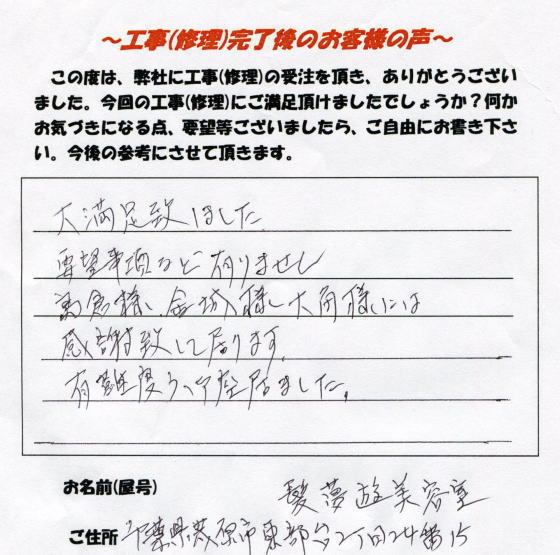 ～工事(修理)完了後のお客様の声～
この度は、弊社に工事(修理)の受注を頂き、ありがとうござい
ました。今回の工事(修理)にご満足頂けましたでしょうか？何か
お気づきになる点、要望等ございましたら、ご自由にお書き下さ
い。今後の参考にさせて頂きます。
大満足致しました
要望事項など有りませし
様、金城様、大角様には
感謝致して居ります。
有難度うございました。
お名前(屋号) 髪夢遊美容室
ご住所 千葉県茂原市東部台2丁目24番15